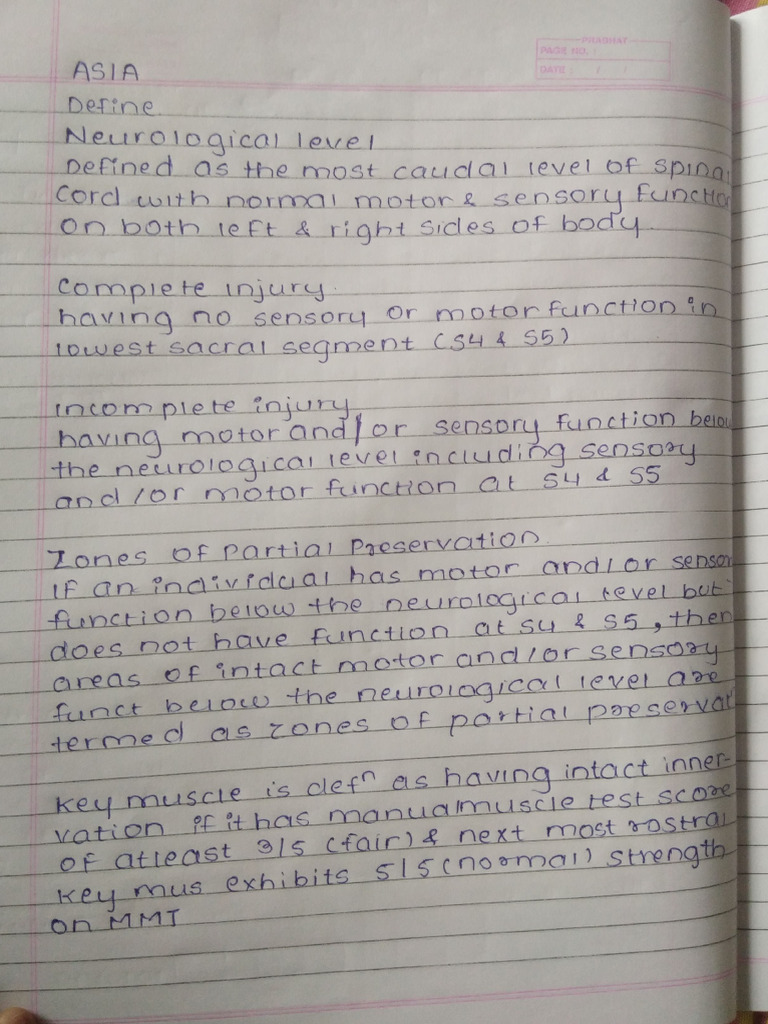 PRABHAT
PAGE NO. /
DATE : / /
ASIA
Define
Neurological level
Defined as the most caudal level of spinal
cord with normal motor & sensory function
on both left & right sides of body
complete injury.
having no sensory or motor function in
lowest sacral segment (S4 & S5)
incomplete injury
having motor and/or sensory function below
the neurological level including sensory
and/or motor function at S4 & S5
Zones of Partial Preservation.
If an individual has motor and/or sensor
function below the neurological level but
does not have function at S4 & S5, then
areas of intact motor and/or sensory
funct below the neurological level are
termed as zones of partial preservat
key muscle is defⁿ as having intact inner-
vation if it has manual muscle test score
of atleast 3/5 (fair) & next most rostral
key mus exhibits 5/5 (normal) strength
on MMT